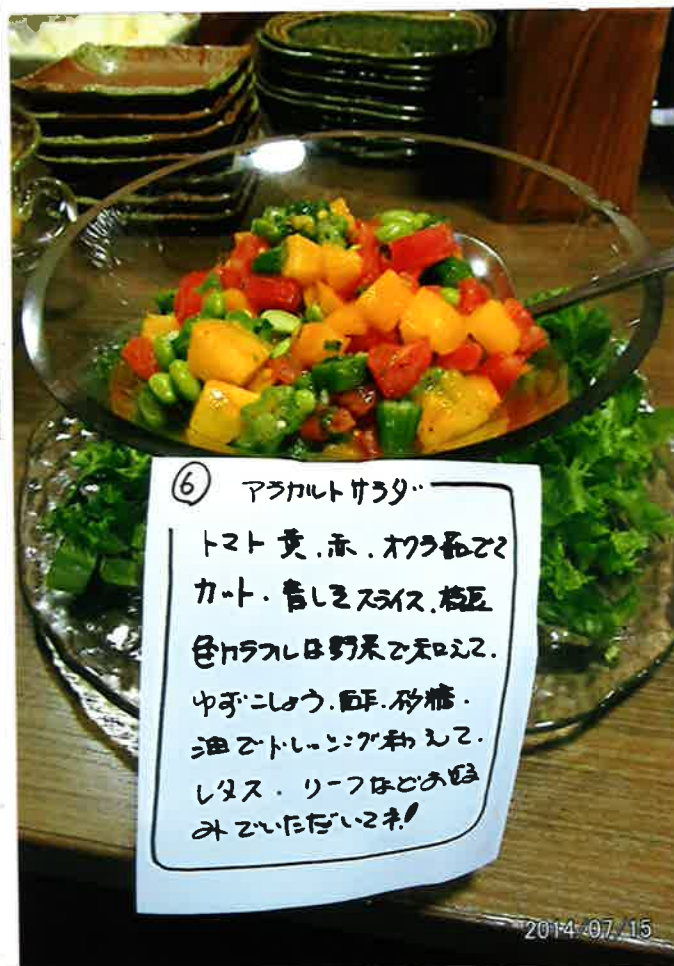 ⑥ アラカルトサラダ
トマト 黄、赤、オクラ茹でて
カット、青しそスライス、枝豆
色カラフルな野菜で和えて、
ゆずこしょう、酢、砂糖、
油でドレッシング和えて、
レタス、リーフなどお好
みでいただいてネ!
2014/07/15